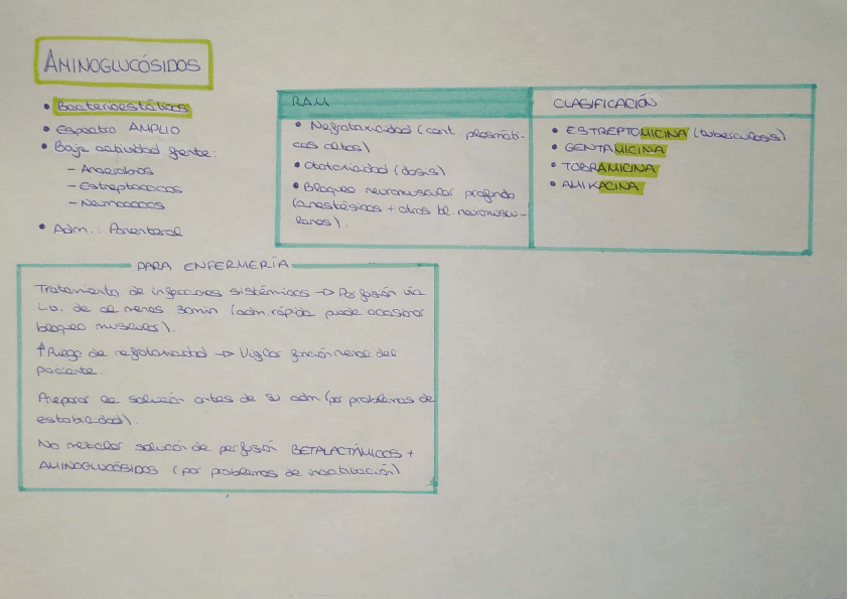 AMINOGLUCÓSIDOS
• Bacterioestáticos
• Espectro AMPLIO
• Baja actividad frente:
– Anaerobios
– Estreptococos
– Neumococos
• Adm.: Parenteral
RAM
• Nefrotoxicidad (cont. plasmáti-
cas altas)
• Ototoxicidad (dosis)
• Bloqueo neuromuscular profundo
(anestésicos + otros bl. neuromuscu-
lares).
CLASIFICACIÓN
• ESTREPTOMICINA (tuberculosis)
• GENTAMICINA
• TOBRAMICINA
• AMIKACINA
PARA ENFERMERÍA
Tratamiento de infecciones sistémicas → Perfusión vía
i.v. de al menos 30min (adm. rápida puede ocasionar
bloqueo muscular).
↑Riesgo de nefrotoxicidad → Vigilar función renal del
paciente.
Preparar la solución antes de su adm (por problemas de
estabilidad).
No mezclar solución de perfusión BETALACTÁMICOS +
AMINOGLUCÓSIDOS (por problemas de inactivación)